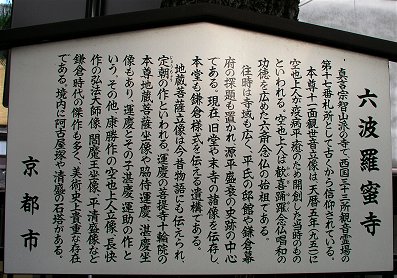 六波羅蜜寺
真言宗智山派の寺で西国三十三所観音霊場の
第十七番札所として古くから信仰されている。
本尊十一面観世音立像は、天暦五年(九五一)に
空也上人が疫病平癒のため開創した当時のもの
といわれる。空也上人は歓喜踊躍念仏唱和の
功徳を広めた六斎念仏の始祖である。
往時は寺域も広く、平氏の邸館や鎌倉幕
府の探題も置かれ、源平盛衰の史跡の中心
である。現在、旧堂や末寺の諸像を伝存し、
本堂も鎌倉様式を伝える遺構である。
地蔵菩薩立像は今昔物語にも伝えられ、
定朝の作といわれる。運慶の菩提寺十輪院の
本尊地蔵菩薩坐像や脇侍運慶、湛慶坐
像もあり、運慶とその子湛慶、運助の作と
いう。その他、康勝作の空也上人立像、長快
作の弘法大師像、閻魔王坐像、平清盛像など
鎌倉時代の傑作も多く、美術史上貴重な存在
である。境内に阿古屋塚や清盛の石塔がある。
京都市